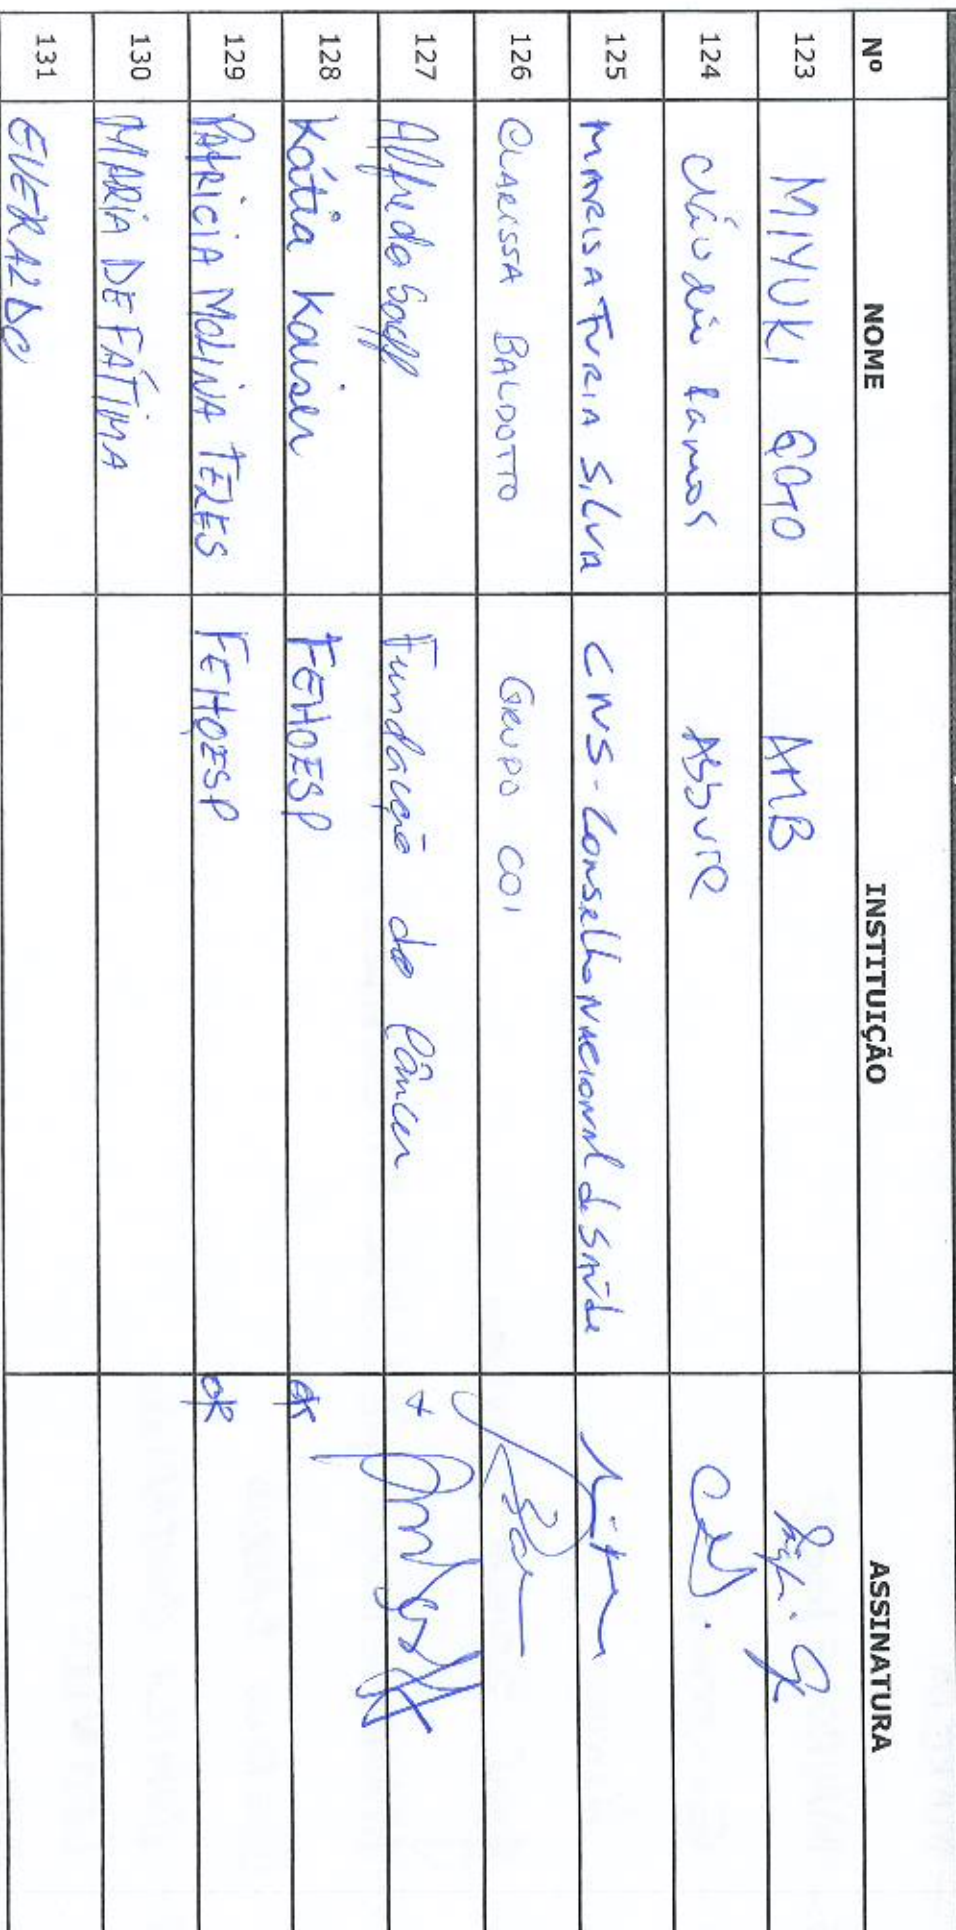 Nº NOME INSTITUIÇÃO ASSINATURA
123 MIYUKI GOTO AMB
124 Cláudia Ramos
125 MARISA FURIA SILVA CNS - Conselho Nacional de Saúde
126 CLARISSA BALDOTTO GRUPO COI
127 Alfredo Scaff Fundação do Câncer
128 Kátia Kaiser FEHOESP OK
129 PATRICIA MOLINA TELES FEHOESP OK
130 MARIA DE FÁTIMA
131 EVERALDO